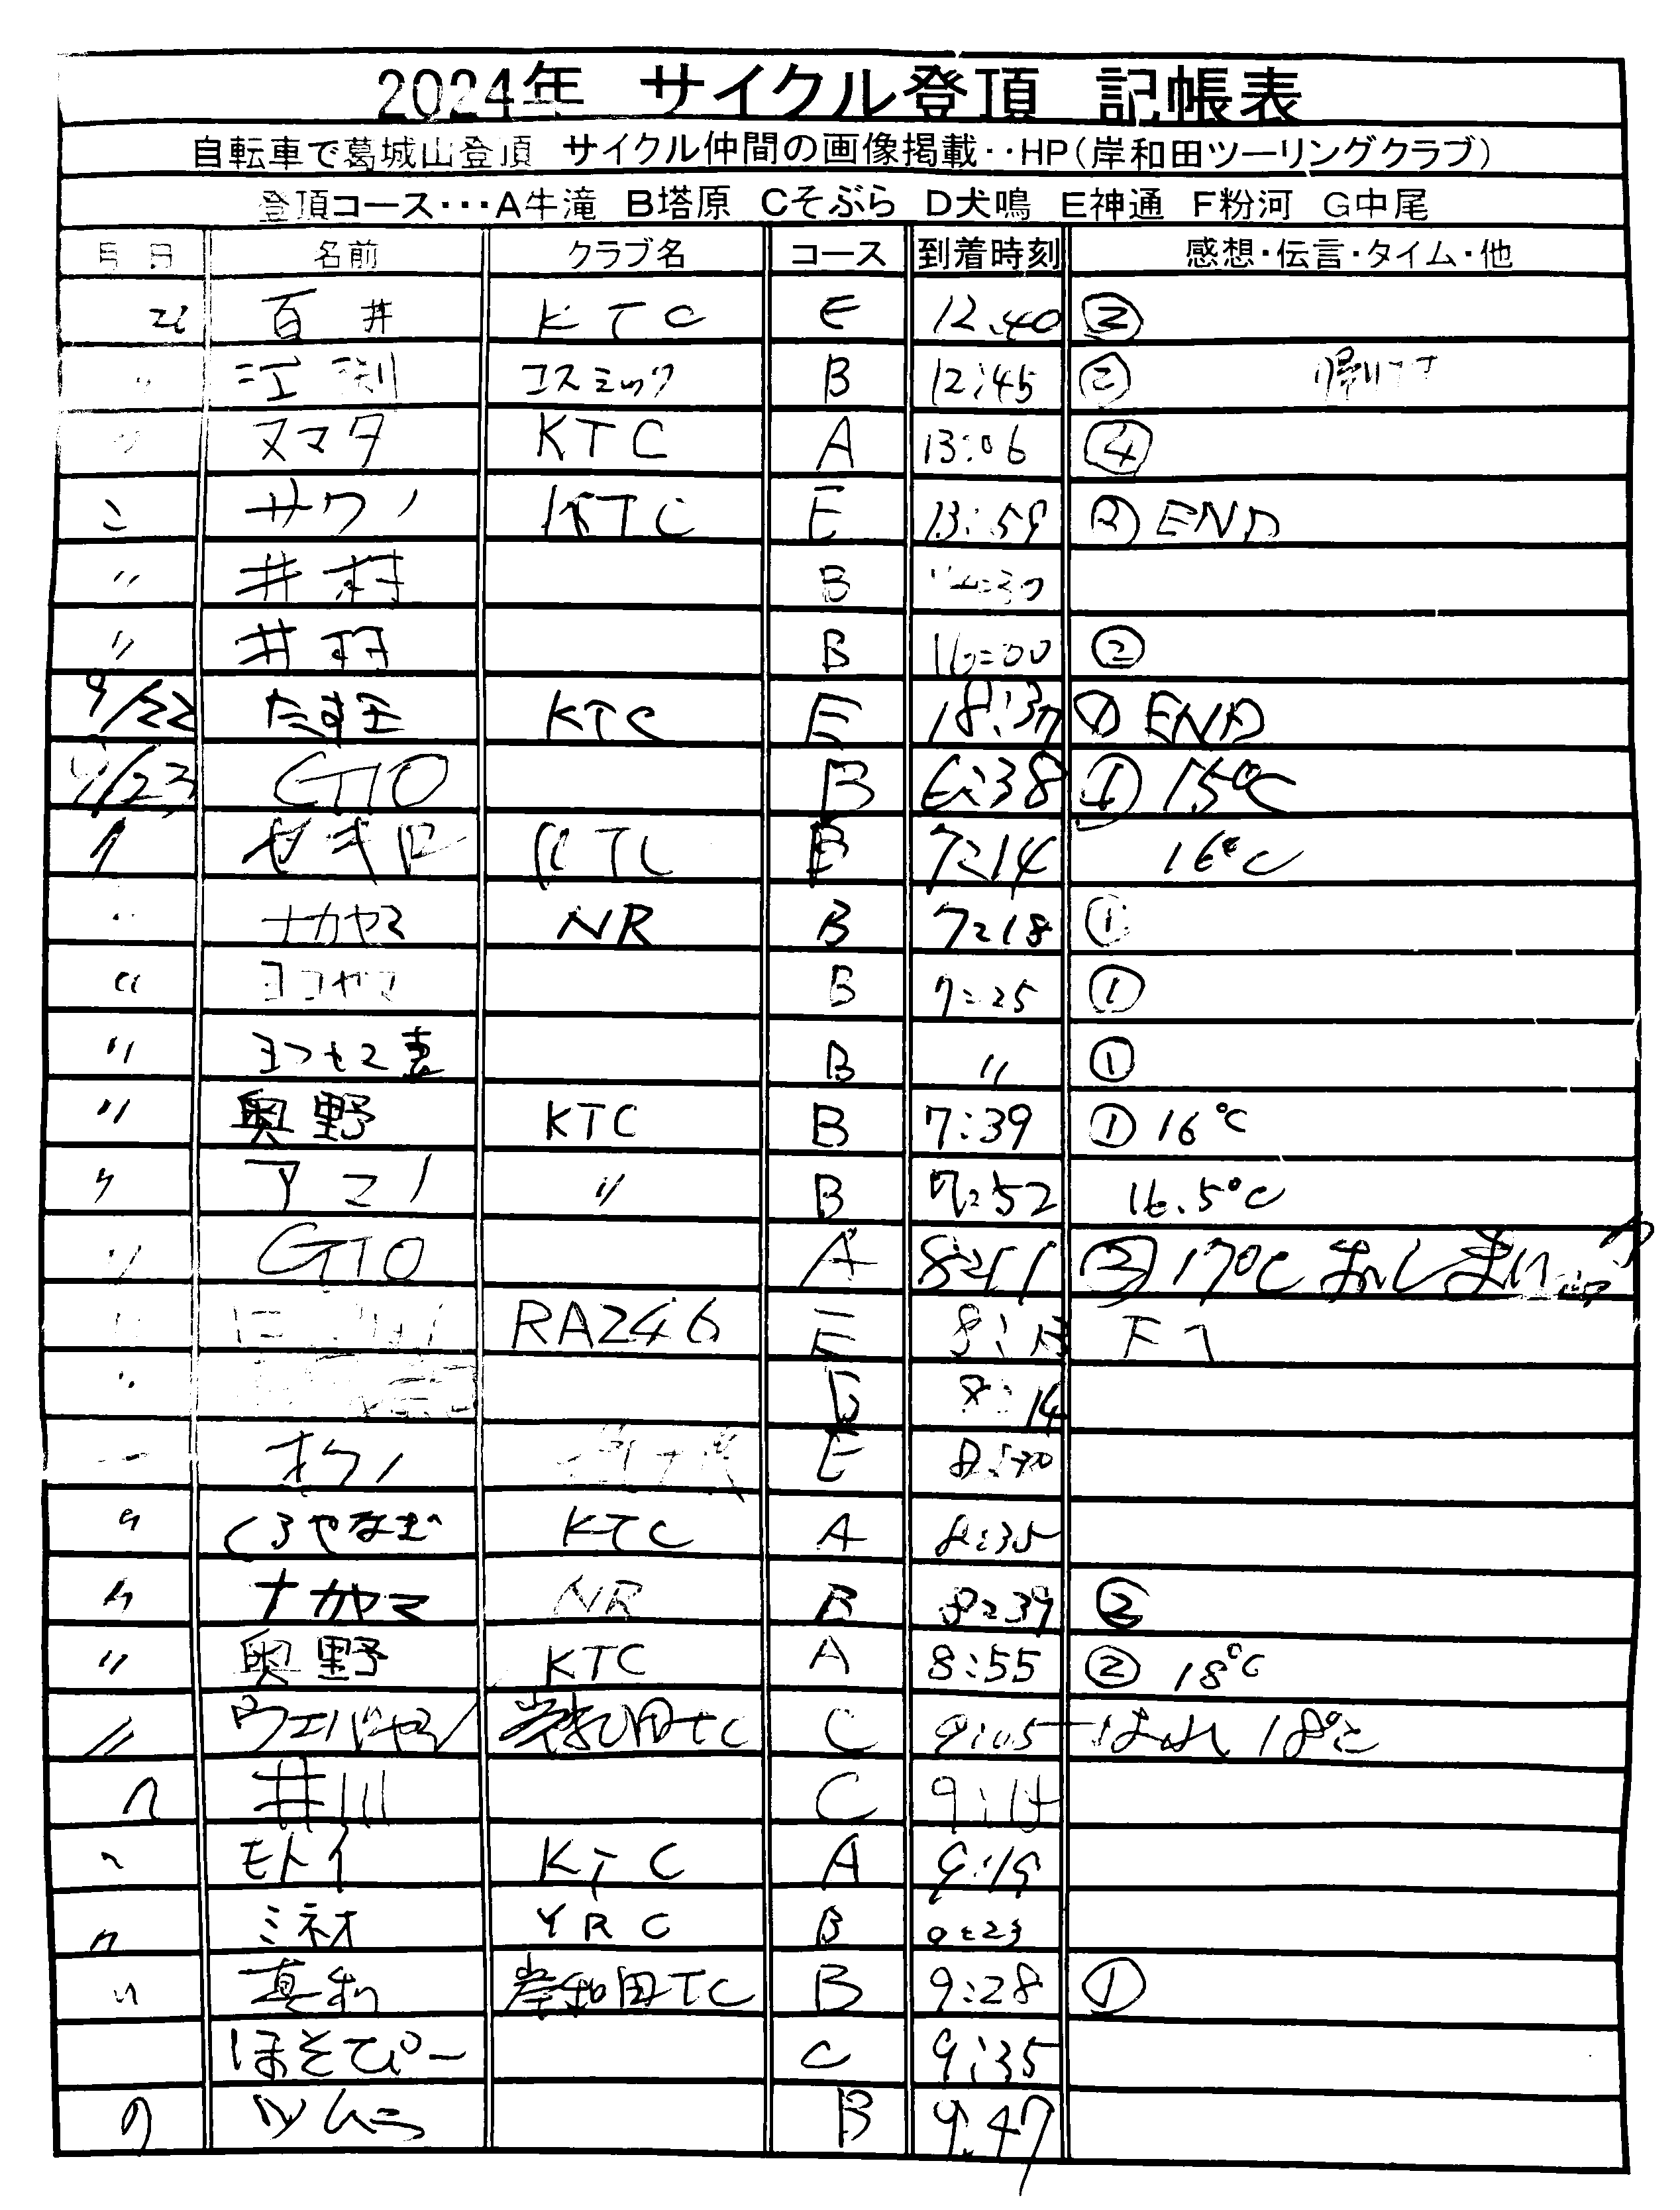 2024年 サイクル登頂 記帳表
自転車で葛城山登頂 サイクル仲間の画像掲載‥HP(岸和田ツーリングクラブ)
登頂コース‥・A牛滝 B塔原 Cそぶら D犬鳴 E神通 F粉河 G中尾
月 日 名前 クラブ名 コース 到着時刻 感想・伝言・タイム・他
百井 KTC E 12:40 ②
〃 江渕 コスミック B 12:45 ②
〃 ヌマタ KTC A 13:06 ④
サワノ KTC E 13:59 ② END
〃 井村 B
〃 井村 B 16:00 ②
9/22 たま王 KTC E 18:37 ① END
9/23 GTO B 6:38 ① 15℃
〃 セキド KTC B 7:14 16℃
〃 ナカヤマ NR B 7:18 ①
〃 ヨコヤマ B 7:25 ①
〃 ヨコヤマ妻 B 〃 ①
〃 奥野 KTC B 7:39 ① 16℃
〃 アマノ 〃 B 7:52 16.5℃
〃 GTO A 8:11 ② 17℃ おしまい
RA246 E
〃 8:14
オクノ E
〃 くろやなぎ KTC A 8:35
〃 ナカヤマ NR B 8:39 ②
〃 奥野 KTC A 8:55 ② 18℃
〃 ウエバヤシ 岸和田TC C 9:05 はれ 18℃
〃 井川 C 9:14
〃 モトイ KTC A 9:19
〃 ミネオ YRC B 9:23
〃 真利 岸和田TC B 9:28 ①
ほそぴー C 9:35
〃 ツムラ B 9:47